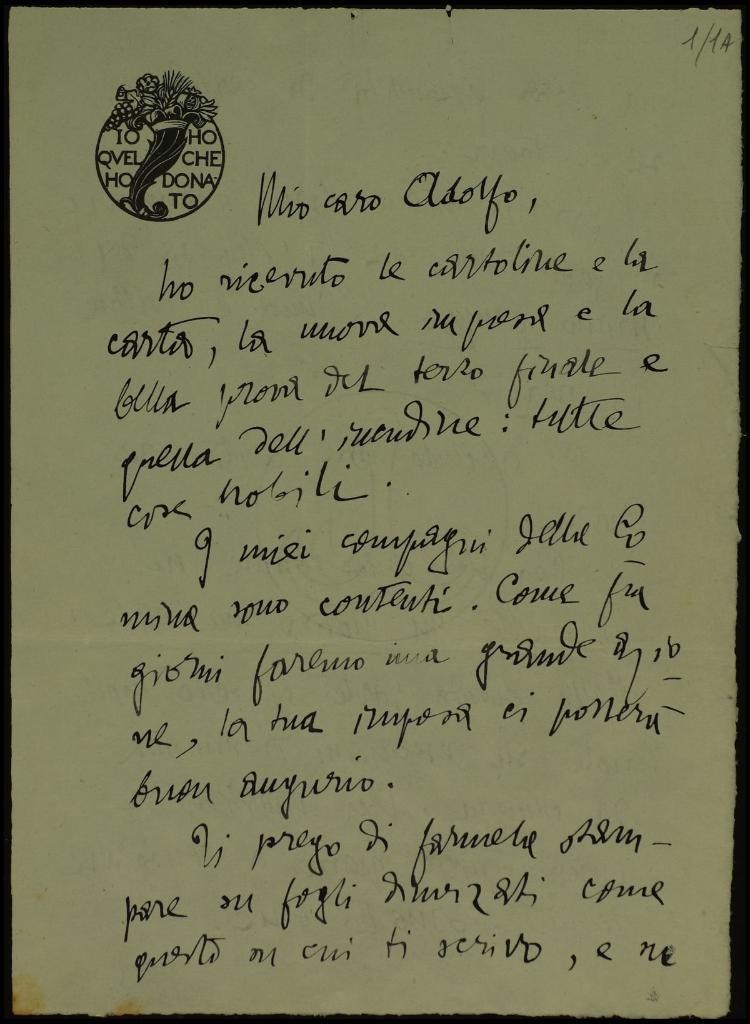 1/1A
IO HO
QVEL CHE
HO DONA
TO
Mio caro Adolfo,
ho ricevuto le cartoline e la
carta, la nuova impresa e la
bella prova del terzo finale e
quella dell'incudine: tutte
cose nobili.
I miei compagni della Co
mina sono contenti. Come fra
giorni faremo una grande azio-
ne, la tua impresa ci porterà
buon augurio.
Ti prego di farmela stam-
pare su fogli dimezzati come
questo su cui ti scrivo, e su